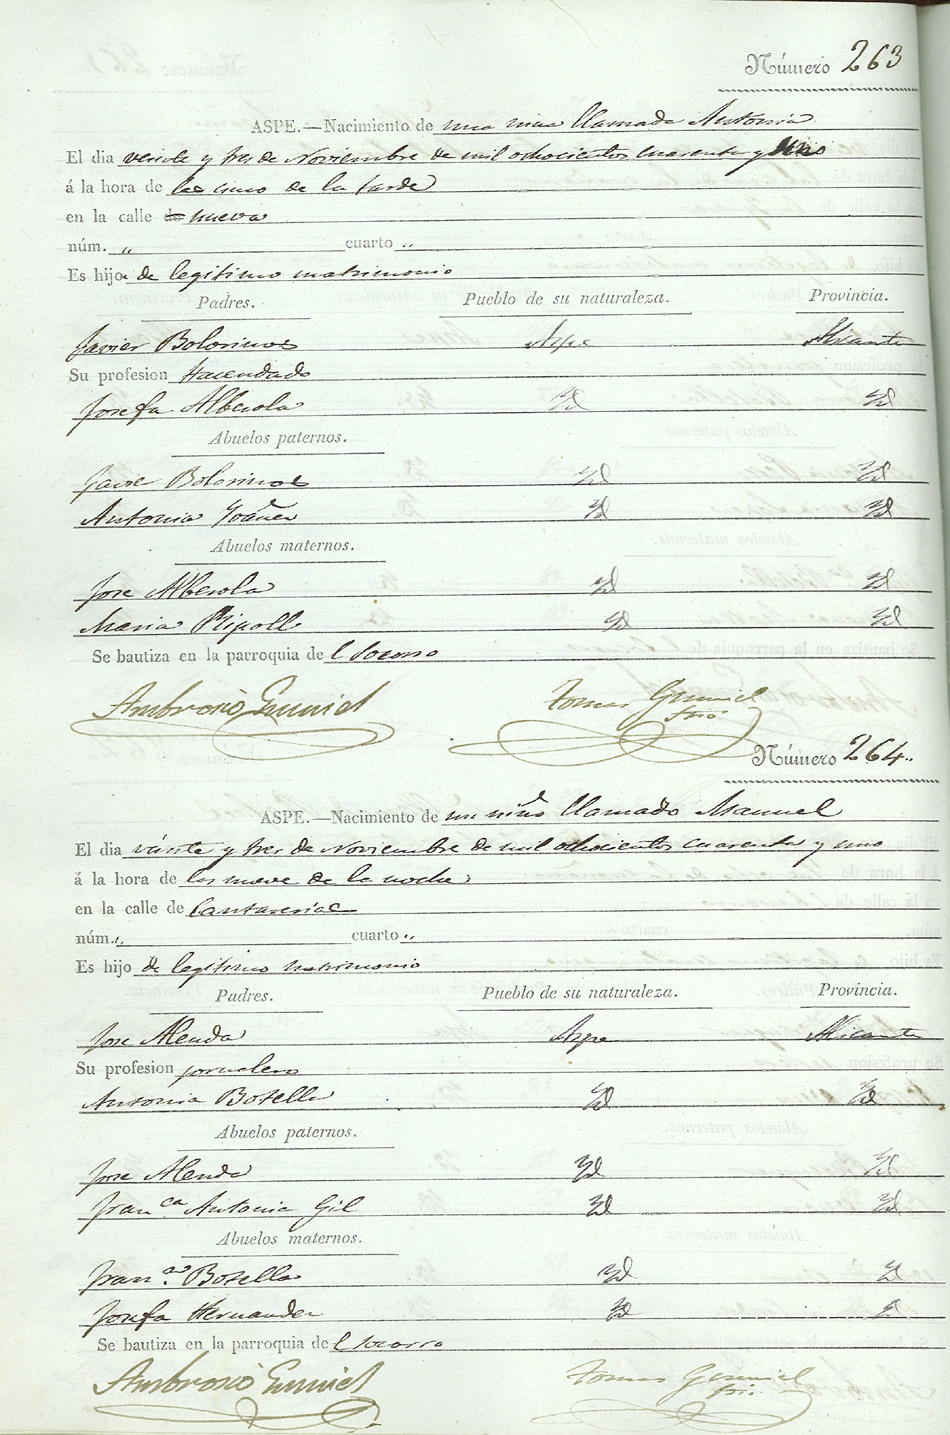 Número 263
ASPE.—Nacimiento de una niña llamada Antonia
El dia veinte y tres de Noviembre de mil ochocientos cuarenta y uno
á la hora de las cinco de la tarde
en la calle de nueva
núm. „ cuarto „
Es hijo de legitimo matrimonio
Padres. Pueblo de su naturaleza. Provincia.
Javier Bolorinos Aspe Alicante
Su profesion Hacendado
Josefa Alberola Yd Yd
Abuelos paternos.
Javier Bolorinos Yd Yd
Antonia Yd Yd
Abuelos maternos.
Jose Alberola Yd Yd
Maria Ripoll Yd Yd
Se bautiza en la parroquia de l Socorro
Ambrosio
Tomas
Srio
Número 264
ASPE.—Nacimiento de un niño llamado Manuel
El dia veinte y tres de Noviembre de mil ochocientos cuarenta y uno
á la hora de las nueve de la noche
en la calle de Cantarerias
núm. „ cuarto „
Es hijo de legitimo matrimonio
Padres. Pueblo de su naturaleza. Provincia.
Jose Alenda Aspe Alicante
Su profesion jornalero
Antonia Botella Yd Yd
Abuelos paternos.
Jose Alenda Yd Yd
Fran.ca Antonia Gil Yd Yd
Abuelos maternos.
Fran.co Botella Yd Yd
Josefa Hernandez Yd Yd
Se bautiza en la parroquia de l Socorro
Ambrosio
Tomas
Sri.